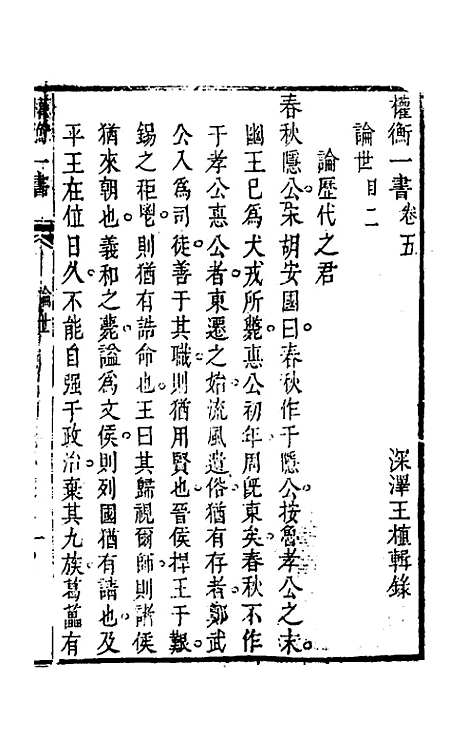 權衡一書卷五
深澤王植輯錄
論世目二
論歷代之君
春秋隱公宋胡安國曰春秋作于隱公按魯孝公之末
幽王已爲犬戎所斃惠公初年周旣東矣春秋不作
于孝公惠公者東遷之始流風遺俗猶有存者鄭武
公入爲司徒善于其職則猶用賢也晉侯捍王于艱
錫之秬鬯則猶有誥命也王曰其歸視爾師則諸侯
猶來朝也義和之薨諡爲文侯則列國猶有請也及
平王在位日久不能自强于政治棄其九族葛藟有
權衡一書
論世